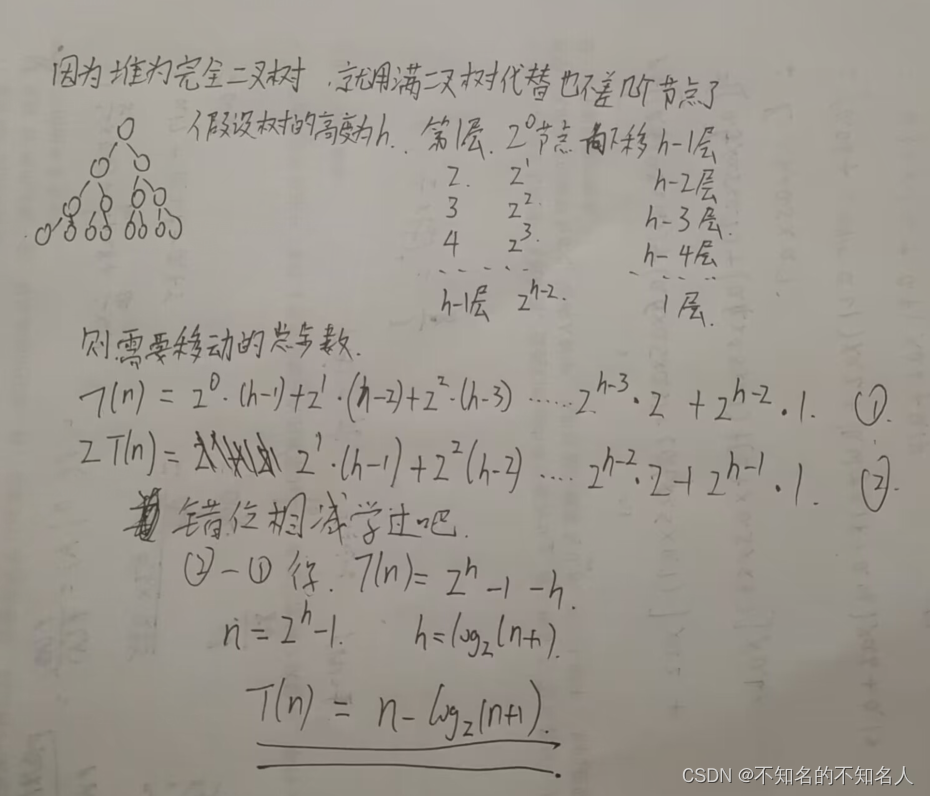 因为堆为完全二叉树,就用满二叉树代替也不差几个节点了
假设树的高度为h. 第1层. 2⁰节点 下移h-1层
2. 2¹ h-2层
3 2². h-3层.
4 2³. h-4层
. . . . . . . . . .
h-1层 2ʰ⁻². 1层.
则需要移动的总步数.
T(n) = 2⁰·(h-1)+2¹·(h-2)+2²·(h-3) ······ 2ʰ⁻³·2 + 2ʰ⁻²·1. ①.
2T(n) = 2¹·(h-1)+2²(h-2) ···· 2ʰ⁻²·2+2ʰ⁻¹·1. ②.
错位相减学过吧.
②-① 得. T(n)= 2ʰ-1-h.
n=2ʰ-1. h=log₂(n+1).
T(n) = n-log₂(n+1).
CSDN @不知名的不知名人